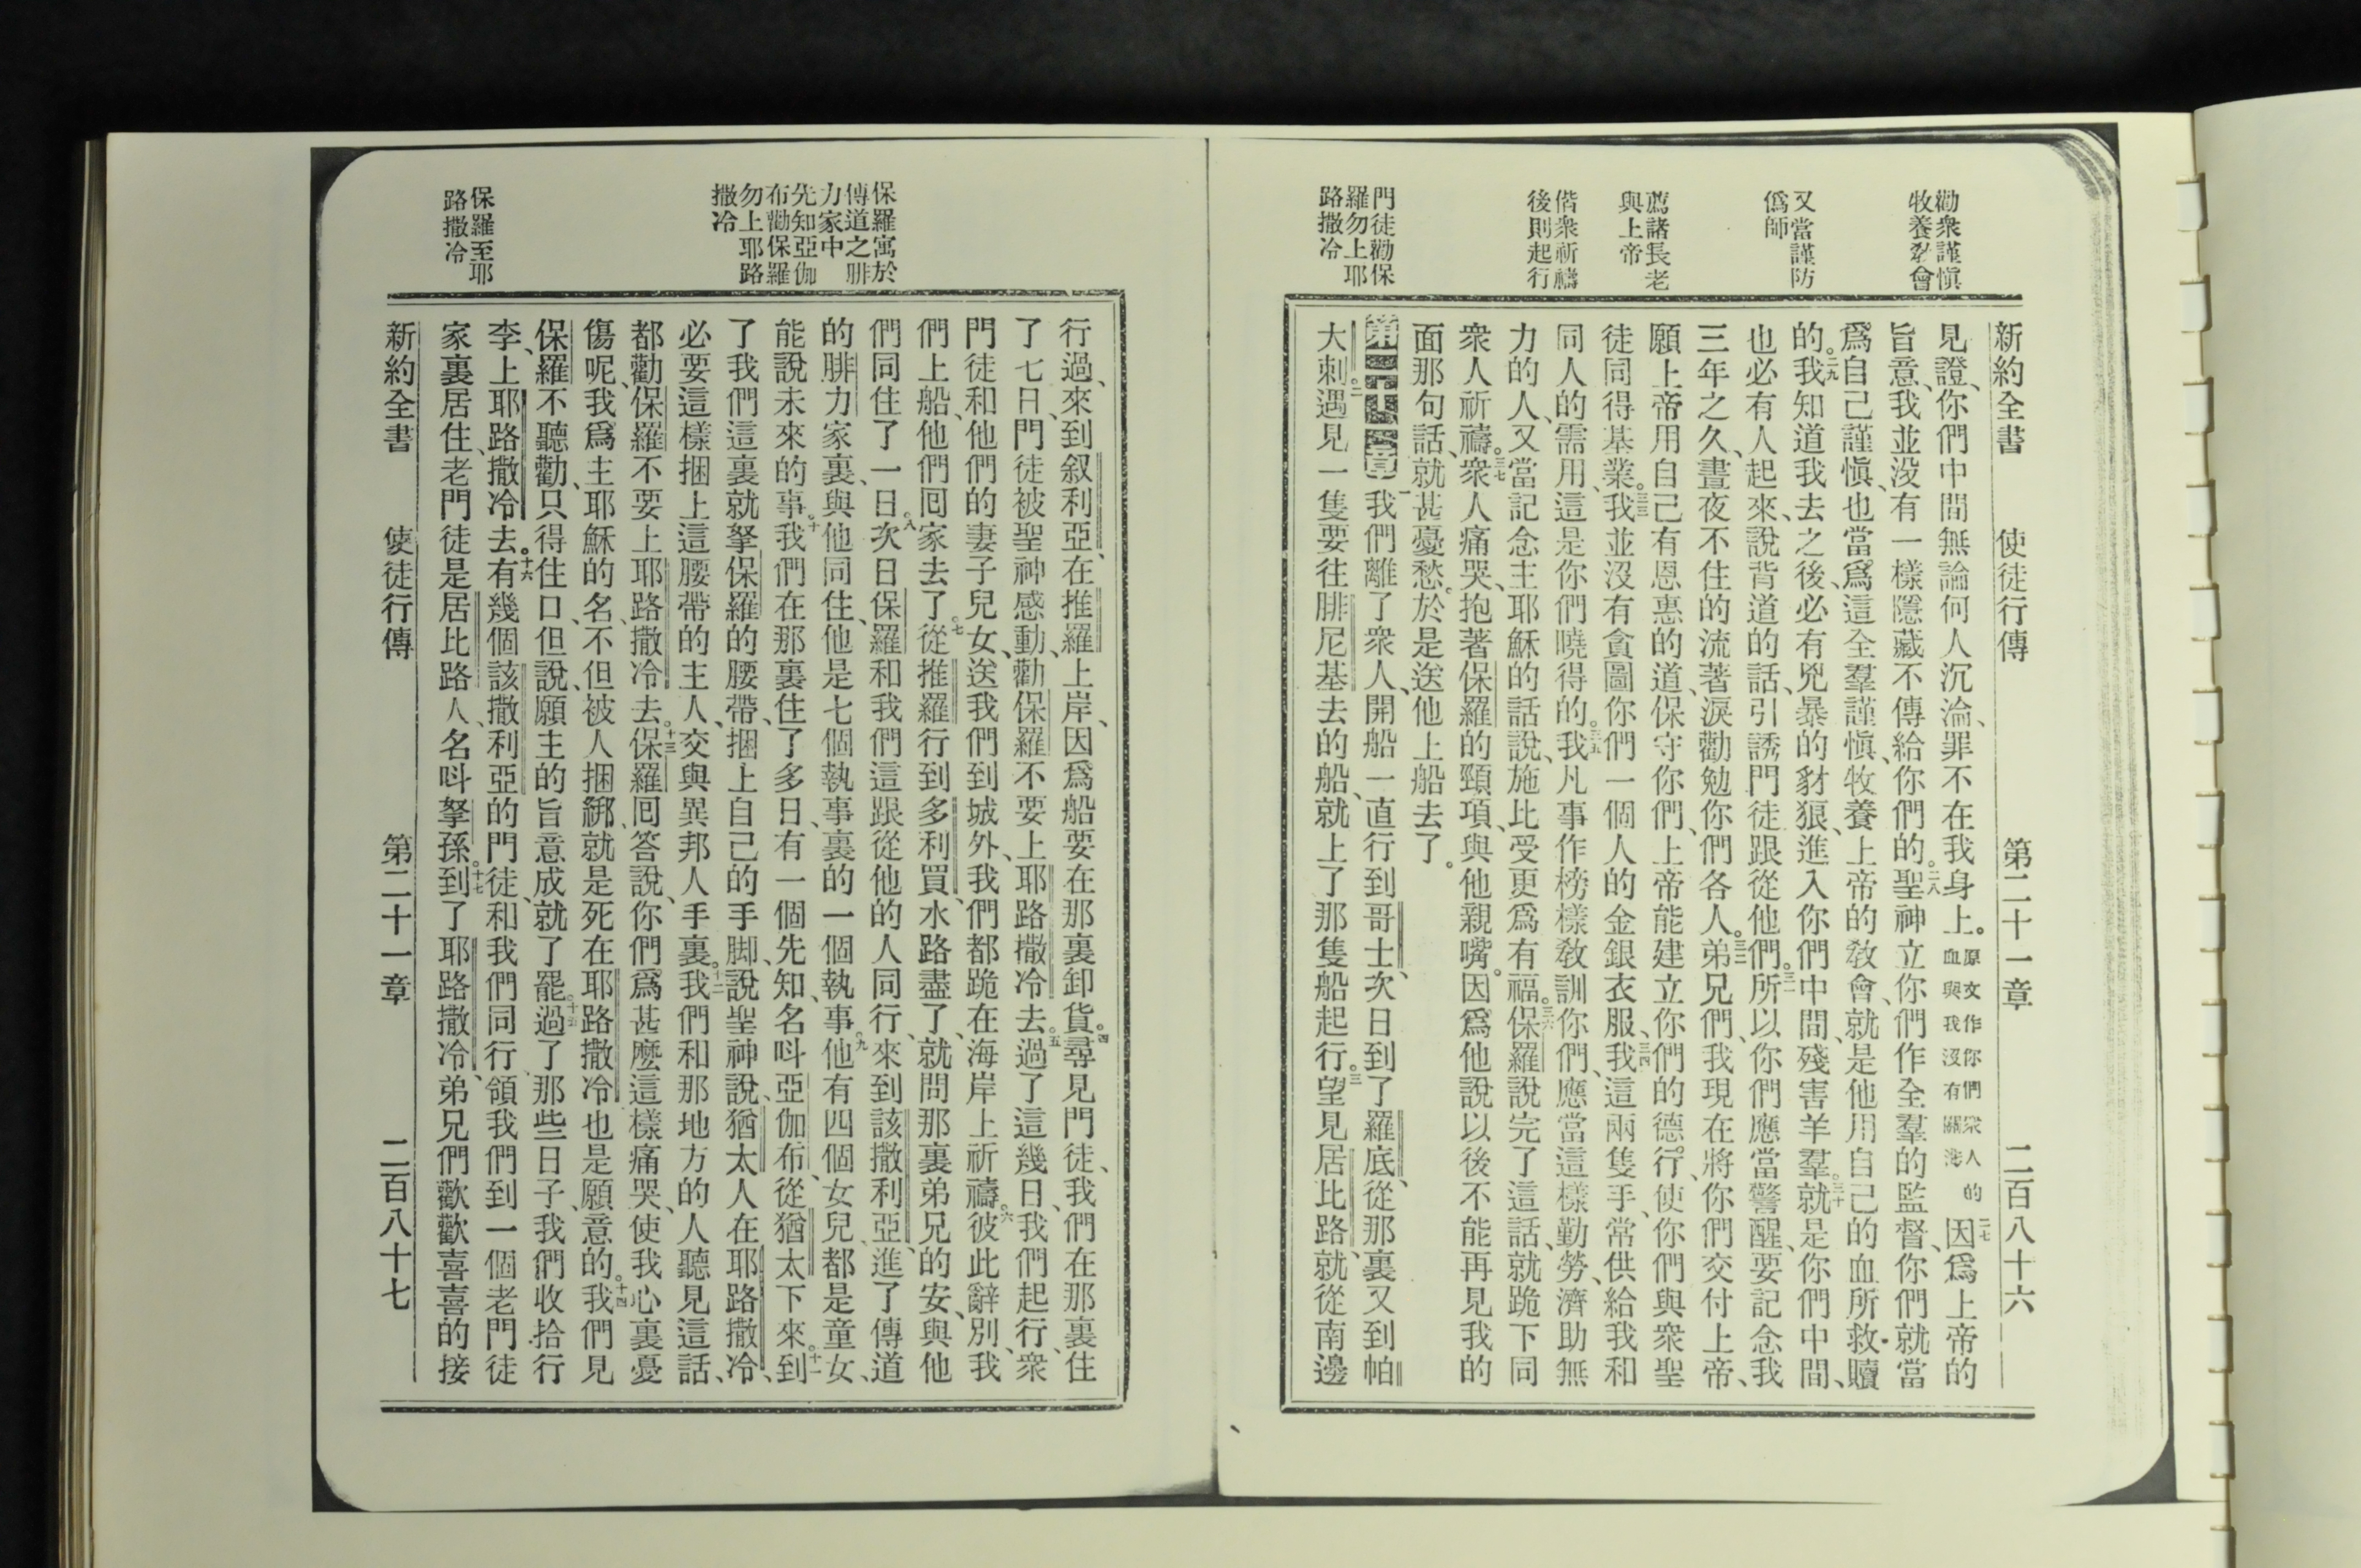 新約全書　使徒行傳　第二十一章　二百八十六
勸衆謹愼
牧養教會
又當謹防
僞師
薦諸長老
與上帝
偕衆祈禱
後則起行
門徒勸保
羅勿上耶
路撒冷
見證、你們中間無論何人沉淪、罪不在我身上。原文作你們衆人的血與我沒有關涉二七因爲上帝的
旨意、我並沒有一樣隱藏不傳給你們的。二八聖神立你們作全羣的監督、你們就當
爲自己謹愼、也當爲這全羣謹愼、牧養上帝的教會、就是他用自己的血所救贖
的。二九我知道我去之後、必有兇暴的豺狼、進入你們中間、殘害羊羣。三十就是你們中間、
也必有人起來、說背道的話、引誘門徒跟從他們。三一所以你們應當警醒、要記念我
三年之久、晝夜不住的流著淚勸勉你們各人。三二弟兄們、我現在將你們交付上帝、
願上帝用自己有恩惠的道、保守你們、上帝能建立你們的德行、使你們與衆聖
徒同得基業。三三我並沒有貪圖你們一個人的金銀衣服、三四我這兩隻手、常供給我和
同人的需用、這是你們曉得的。三五我凡事作榜樣教訓你們、應當這樣勤勞、濟助無
力的人、又當記念主耶穌的話說、施比受更爲有福。三六保羅說完了這話、就跪下同
衆人祈禱。三七衆人痛哭、抱著保羅的頸項、與他親嘴。因爲他說以後不能再見我的
面那句話、就甚憂愁。於是送他上船去了。
第二十一章一我們離了衆人、開船一直行到哥士、次日到了羅底、從那裏又到帕
大刺。二遇見一隻要往腓尼基去的船、就上了那隻船起行。三望見居比路、就從南邊
保羅寓於
傳道之腓
力家中
先知亞伽
布勸保羅
勿上耶路
撒冷
保羅至耶
路撒冷
行過、來到叙利亞、在推羅上岸、因爲船要在那裏卸貨。四尋見門徒、我們在那裏住
了七日、門徒被聖神感動、勸保羅不要上耶路撒冷去。五過了這幾日、我們起行、衆
門徒和他們的妻子兒女、送我們到城外、我們都跪在海岸上祈禱。六彼此辭別、我
們上船、他們囘家去了。七從推羅行到多利買、水路盡了、就問那裏弟兄的安、與他
們同住了一日。八次日保羅和我們這跟從他的人同行、來到該撒利亞、進了傳道
的腓力家裏、與他同住、他是七個執事裏的一個執事。九他有四個女兒、都是童女、
能說未來的事。十我們在那裏住了多日、有一個先知、名呌亞伽布、從猶太下來。十一到
了我們這裏就拏保羅的腰帶、捆上自己的手脚、說聖神說、猶太人在耶路撒冷、
必要這樣捆上這腰帶的主人、交與異邦人手裏。十二我們和那地方的人聽見這話、
都勸保羅不要上耶路撒冷去。十三保羅囘答說、你們爲甚麼這樣痛哭、使我心裏憂
傷呢、我爲主耶穌的名、不但被人捆綁、就是死在耶路撒冷也是願意的。十四我們見
保羅不聽勸、只得住口、但說、願主的旨意成就了罷。十五過了那些日子、我們收拾行
李、上耶路撒冷去。十六有幾個該撒利亞的門徒、和我們同行、領我們到一個老門徒
家裏居住、老門徒是居比路人、名呌拏孫。十七到了耶路撒冷、弟兄們歡歡喜喜的接
新約全書　使徒行傳　第二十一章　二百八十七